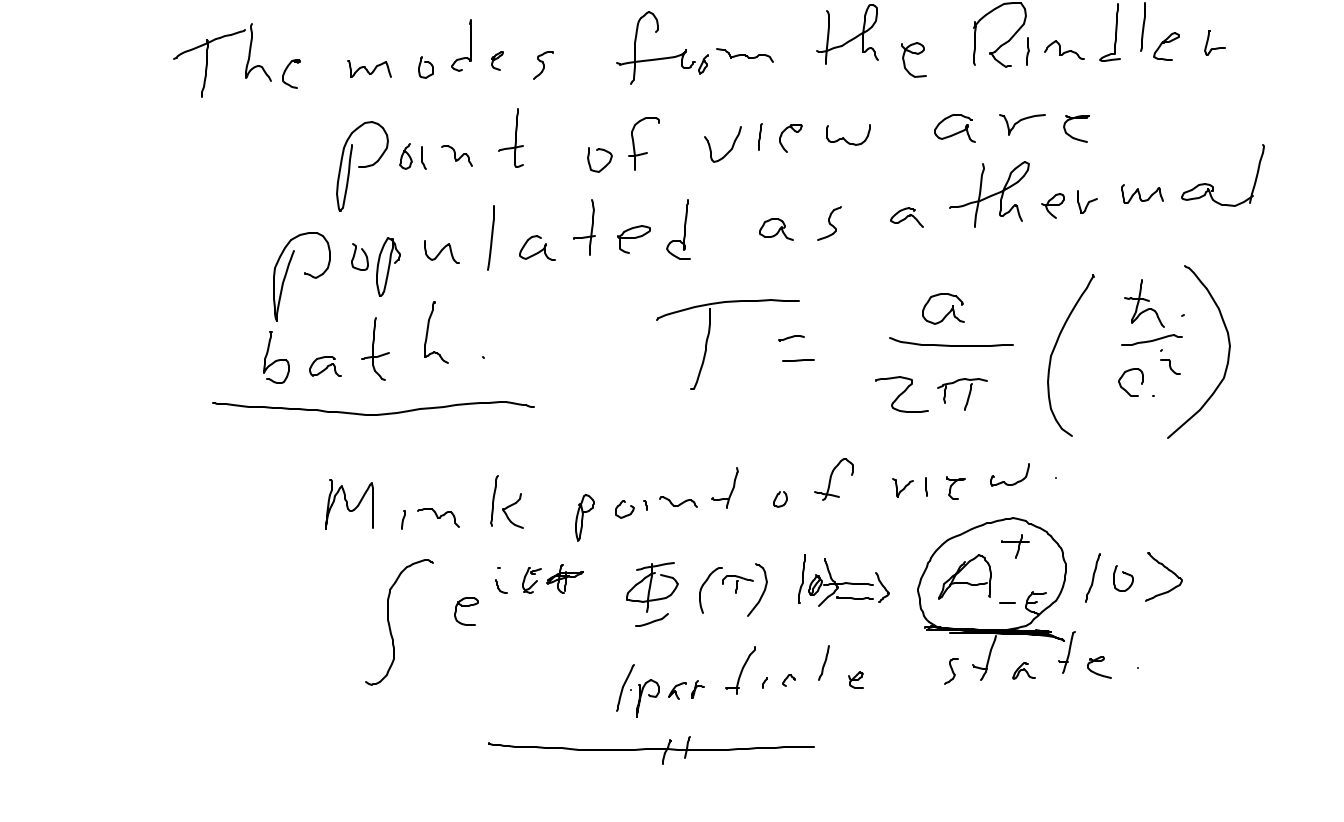 The modes from the Rindler
point of view are
populated as a thermal
bath. T = a/2π (ħ/c²)
Mink point of view.
∫ e^{iEτ} Φ(τ) |0> => A^+_{-E} |0>
1 particle state.